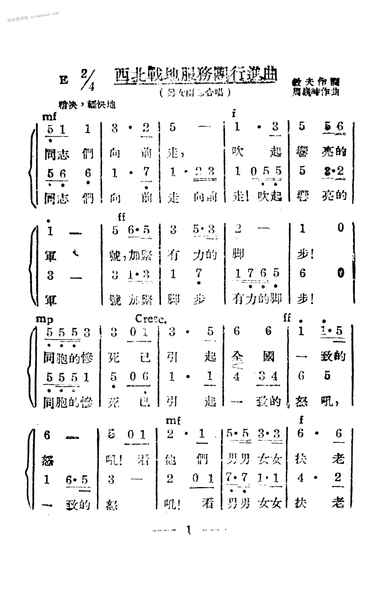 E 2/4 西北戰地服務團行進曲
敏夫作詞
(男女聲二合唱)
周巍峙作曲
稍快,輕快地
mf f
5 1 1 3 · 2 5 — 1 · 3 5 5 6
同志們 向前 走, 吹起 響亮的
5 6 6 1 · 7 1 · 2 3 1 0 5 5 5 3 · 2
同志們 向前 走向前 走!吹起 響亮的
ff
1 — 5 6·5 3 5·3 2 — 1 0
軍 號,加緊 有力的 脚 步!
3 — 3 1·3 1 7 1 7 6 5 6 0
軍 號加緊 脚步 有力的脚 步!
mp Cresc. ff
5 5 5 3 3 0 1 3 · 5 6 6 1 1·5
同胞的慘 死已 引起 全國 一致的
5 5 5 1 5 0 6 1 · 1 4 3 4 6 5
同胞的慘 死已 引起 一致的 怒吼,
mf f
6 — 5 0 1 2 · 1 5·5 3·3 6 · 6
怒 吼!看 他們 男男女女 扶老
1 6·5 3 — 2 0 1 7·7 1·1 4 · 2
一致的 怒 吼!看 男男女女 扶老
1